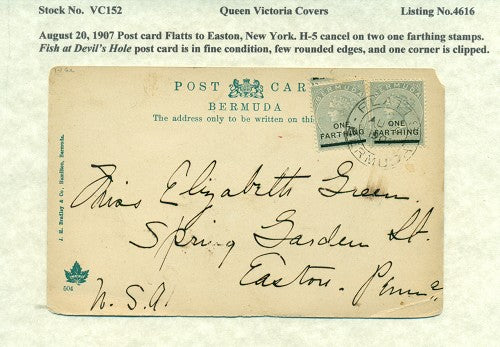 Stock No. VC152 Queen Victoria Covers Listing No.4616
August 20, 1907 Post card Flatts to Easton, New York. H-5 cancel on two one farthing stamps.
Fish at Devil's Hole post card is in fine condition, few rounded edges, and one corner is clipped.
POST CAR
BERMUDA
The address only to be written on thi
BERMUDA
BERMUDA
ONE FARTHING
ONE FARTHING
FLATTS
BERMUDA
J. H. Bradley & Co., Hamilton, Bermuda.
Miss Elizabeth Green
Spring Garden St.
Easton, Penna
N.S.A.
504